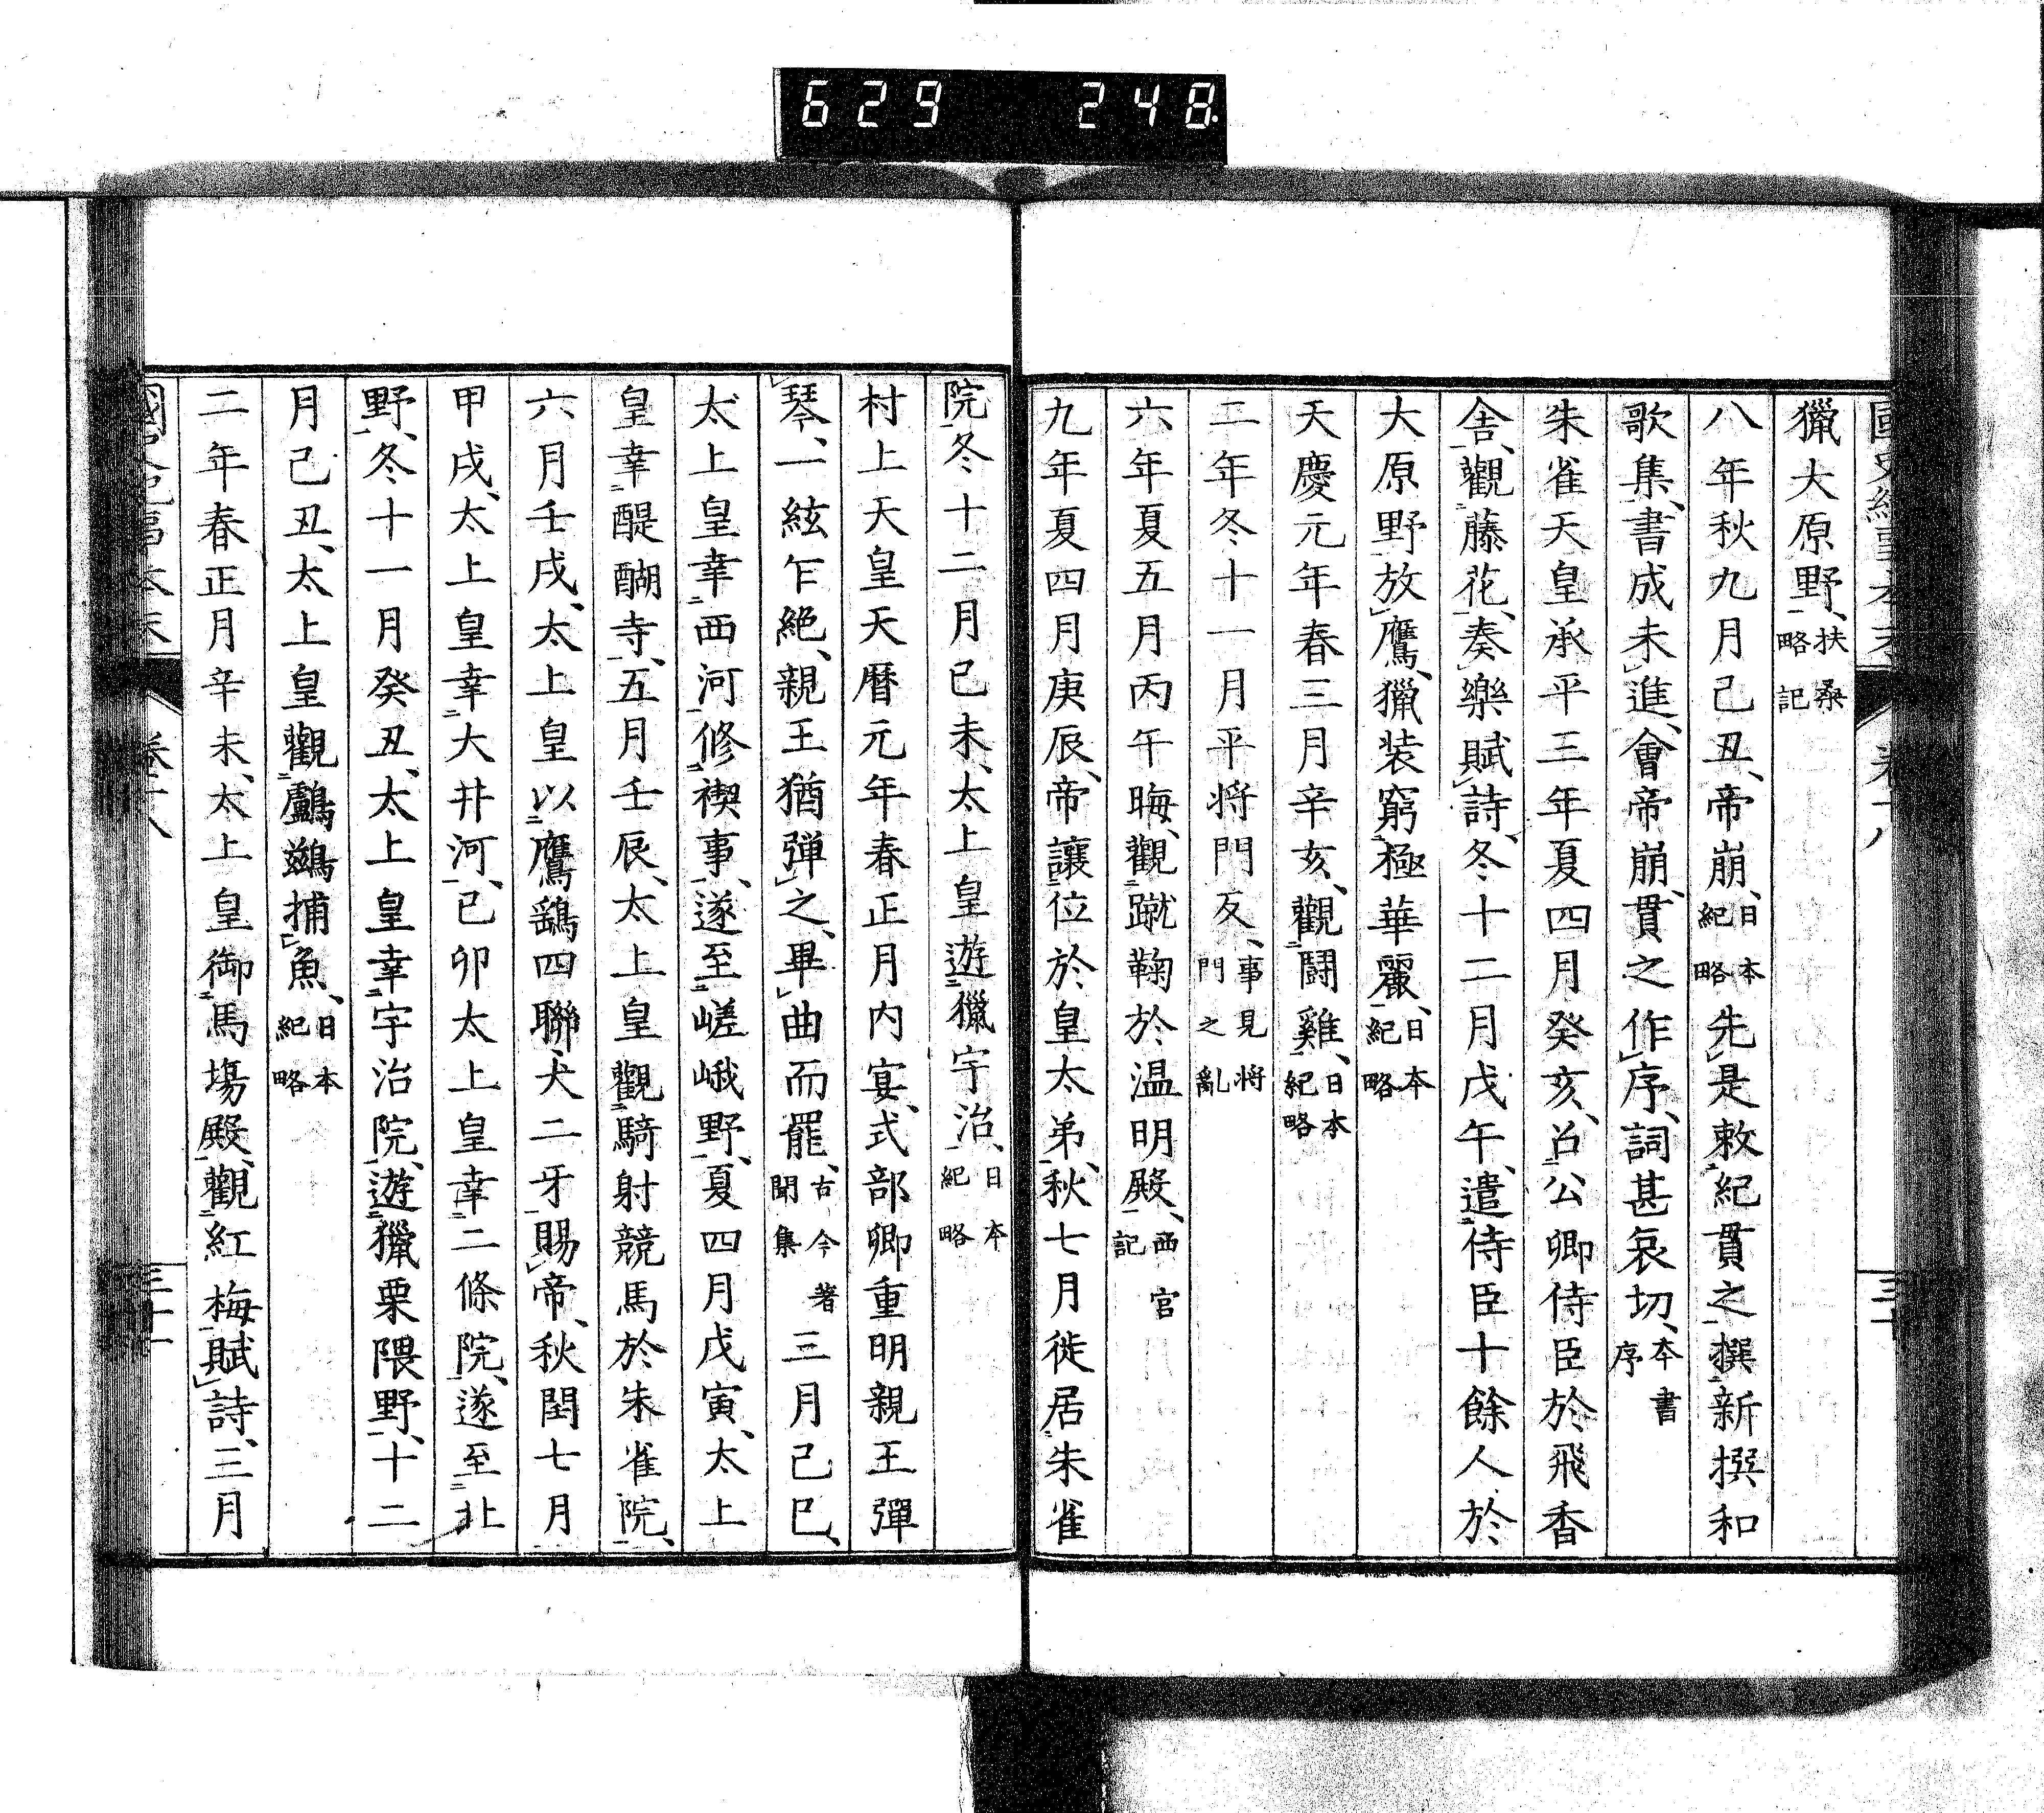 629 248
獵大原野、扶桑略記
八年秋九月己丑、帝崩、日本紀略先是敕紀貫之撰新撰和
歌集、書成未進、會帝崩、貫之作序、詞甚哀切、本書序
朱雀天皇承平三年夏四月癸亥、召公卿侍臣於飛香
舎、觀藤花、奏樂賦詩、冬十二月戊午、遣侍臣十餘人於
大原野放鷹、獵装窮極華麗、日本紀略
天慶元年春三月辛亥、觀鬪雞、日本紀略
二年冬十一月平将門反、事見将門之亂
六年夏五月丙午晦、觀蹴鞠於温明殿、西宮記
九年夏四月庚辰、帝讓位於皇太弟、秋七月徙居朱雀
院、冬十二月己未、太上皇遊獵宇治、日本紀略
村上天皇天暦元年春正月内宴、式部卿重明親王彈
琴、一絃乍絶、親王猶彈之、畢曲而罷、古今著聞集三月己巳、
太上皇幸西河修禊事、遂至嵯峨野、夏四月戊寅、太上
皇幸醍醐寺、五月壬辰、太上皇觀騎射競馬於朱雀院、
六月壬戌、太上皇以鷹鷂四聯犬二牙賜帝、秋閏七月
甲戌、太上皇幸大井河、己卯太上皇幸二條院、遂至北
野、冬十一月癸丑、太上皇幸宇治院、遊獵栗隈野、十二
月己丑、太上皇觀鸕鷀捕魚、日本紀略
二年春正月辛未、太上皇御馬場殿、觀紅梅賦詩、三月